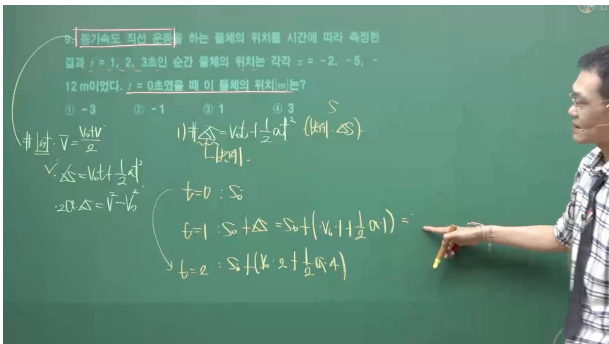 9. 등가속도 직선 운동을 하는 물체의 위치를 시간에 따라 측정한
결과 t = 1, 2, 3초인 순간 물체의 위치는 각각 x = -2, -5, -
12 m이었다. t = 0초였을 때 이 물체의 위치[m]는?
① -3 ② -1 ③ 1 ④ 3
S
V̅ = (V₀+V)/2
1) # ΔS = V₀t + ½at² (변위 · ΔS)
변위.
ΔS = V₀t + ½at²
· 2a·ΔS = V² - V₀²
t=0 : S₀
t=1 : S₀ + ΔS = S₀ + (V₀·1 + ½a·1) =
t=2 : S₀ + (V₀·2 + ½a·4)